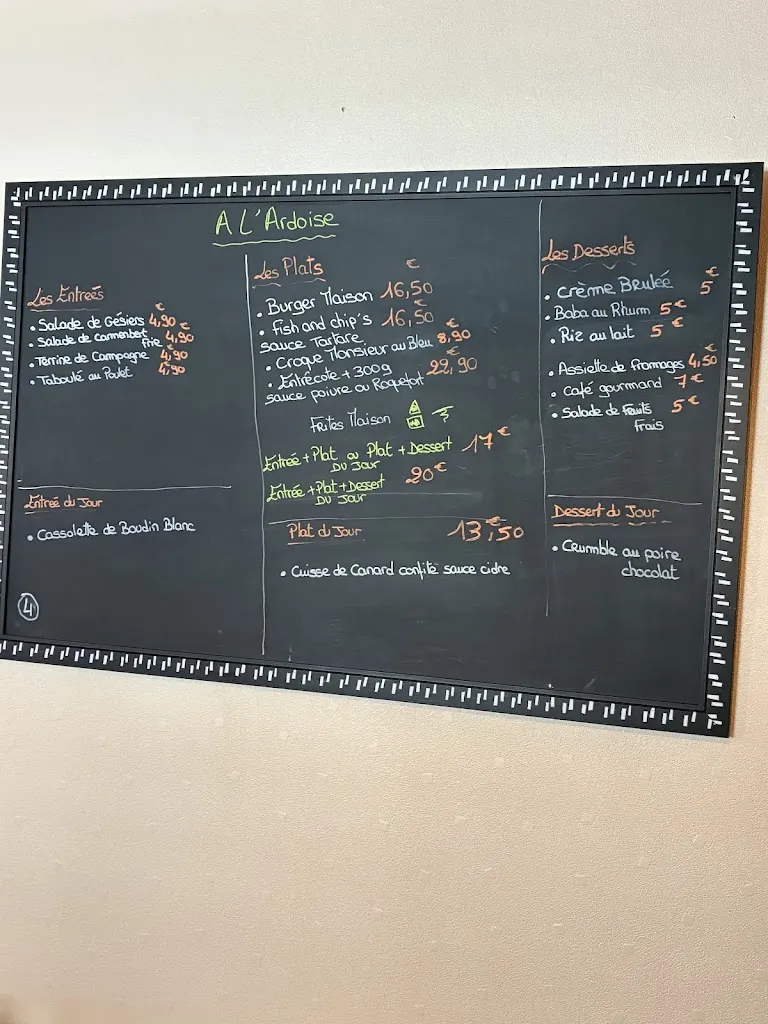 A L'Ardoise
Les Entrées
• Salade de Gésiers 4,90 €
• Salade de camembert frie 4,90 €
• Terrine de Campagne 4,90 €
• Taboulé au Poulet 4,90 €
Entrée du Jour
• Cassolette de Boudin Blanc
4
Les Plats
• Burger Maison 16,50 €
• Fish and chip's 16,50 €
sauce Tartare
• Croque Monsieur au Bleu 8,90 €
• Entrecôte + 300g 22,90 €
sauce poivre ou Roquefort
Frites Maison
Entrée + Plat ou Plat + Dessert 17 €
DU JOUR
Entrée + Plat + Dessert 20 €
DU JOUR
Plat du Jour 13,50 €
• Cuisse de Canard confite sauce cidre
Les Desserts
• Crème Brulée 5 €
• Baba au Rhum 5 €
• Riz au lait 5 €
• Assiette de fromages 4,50 €
• Café gourmand 7 €
• Salade de fruits 5 €
Frais
Dessert du Jour
• Crumble au poire
chocolat